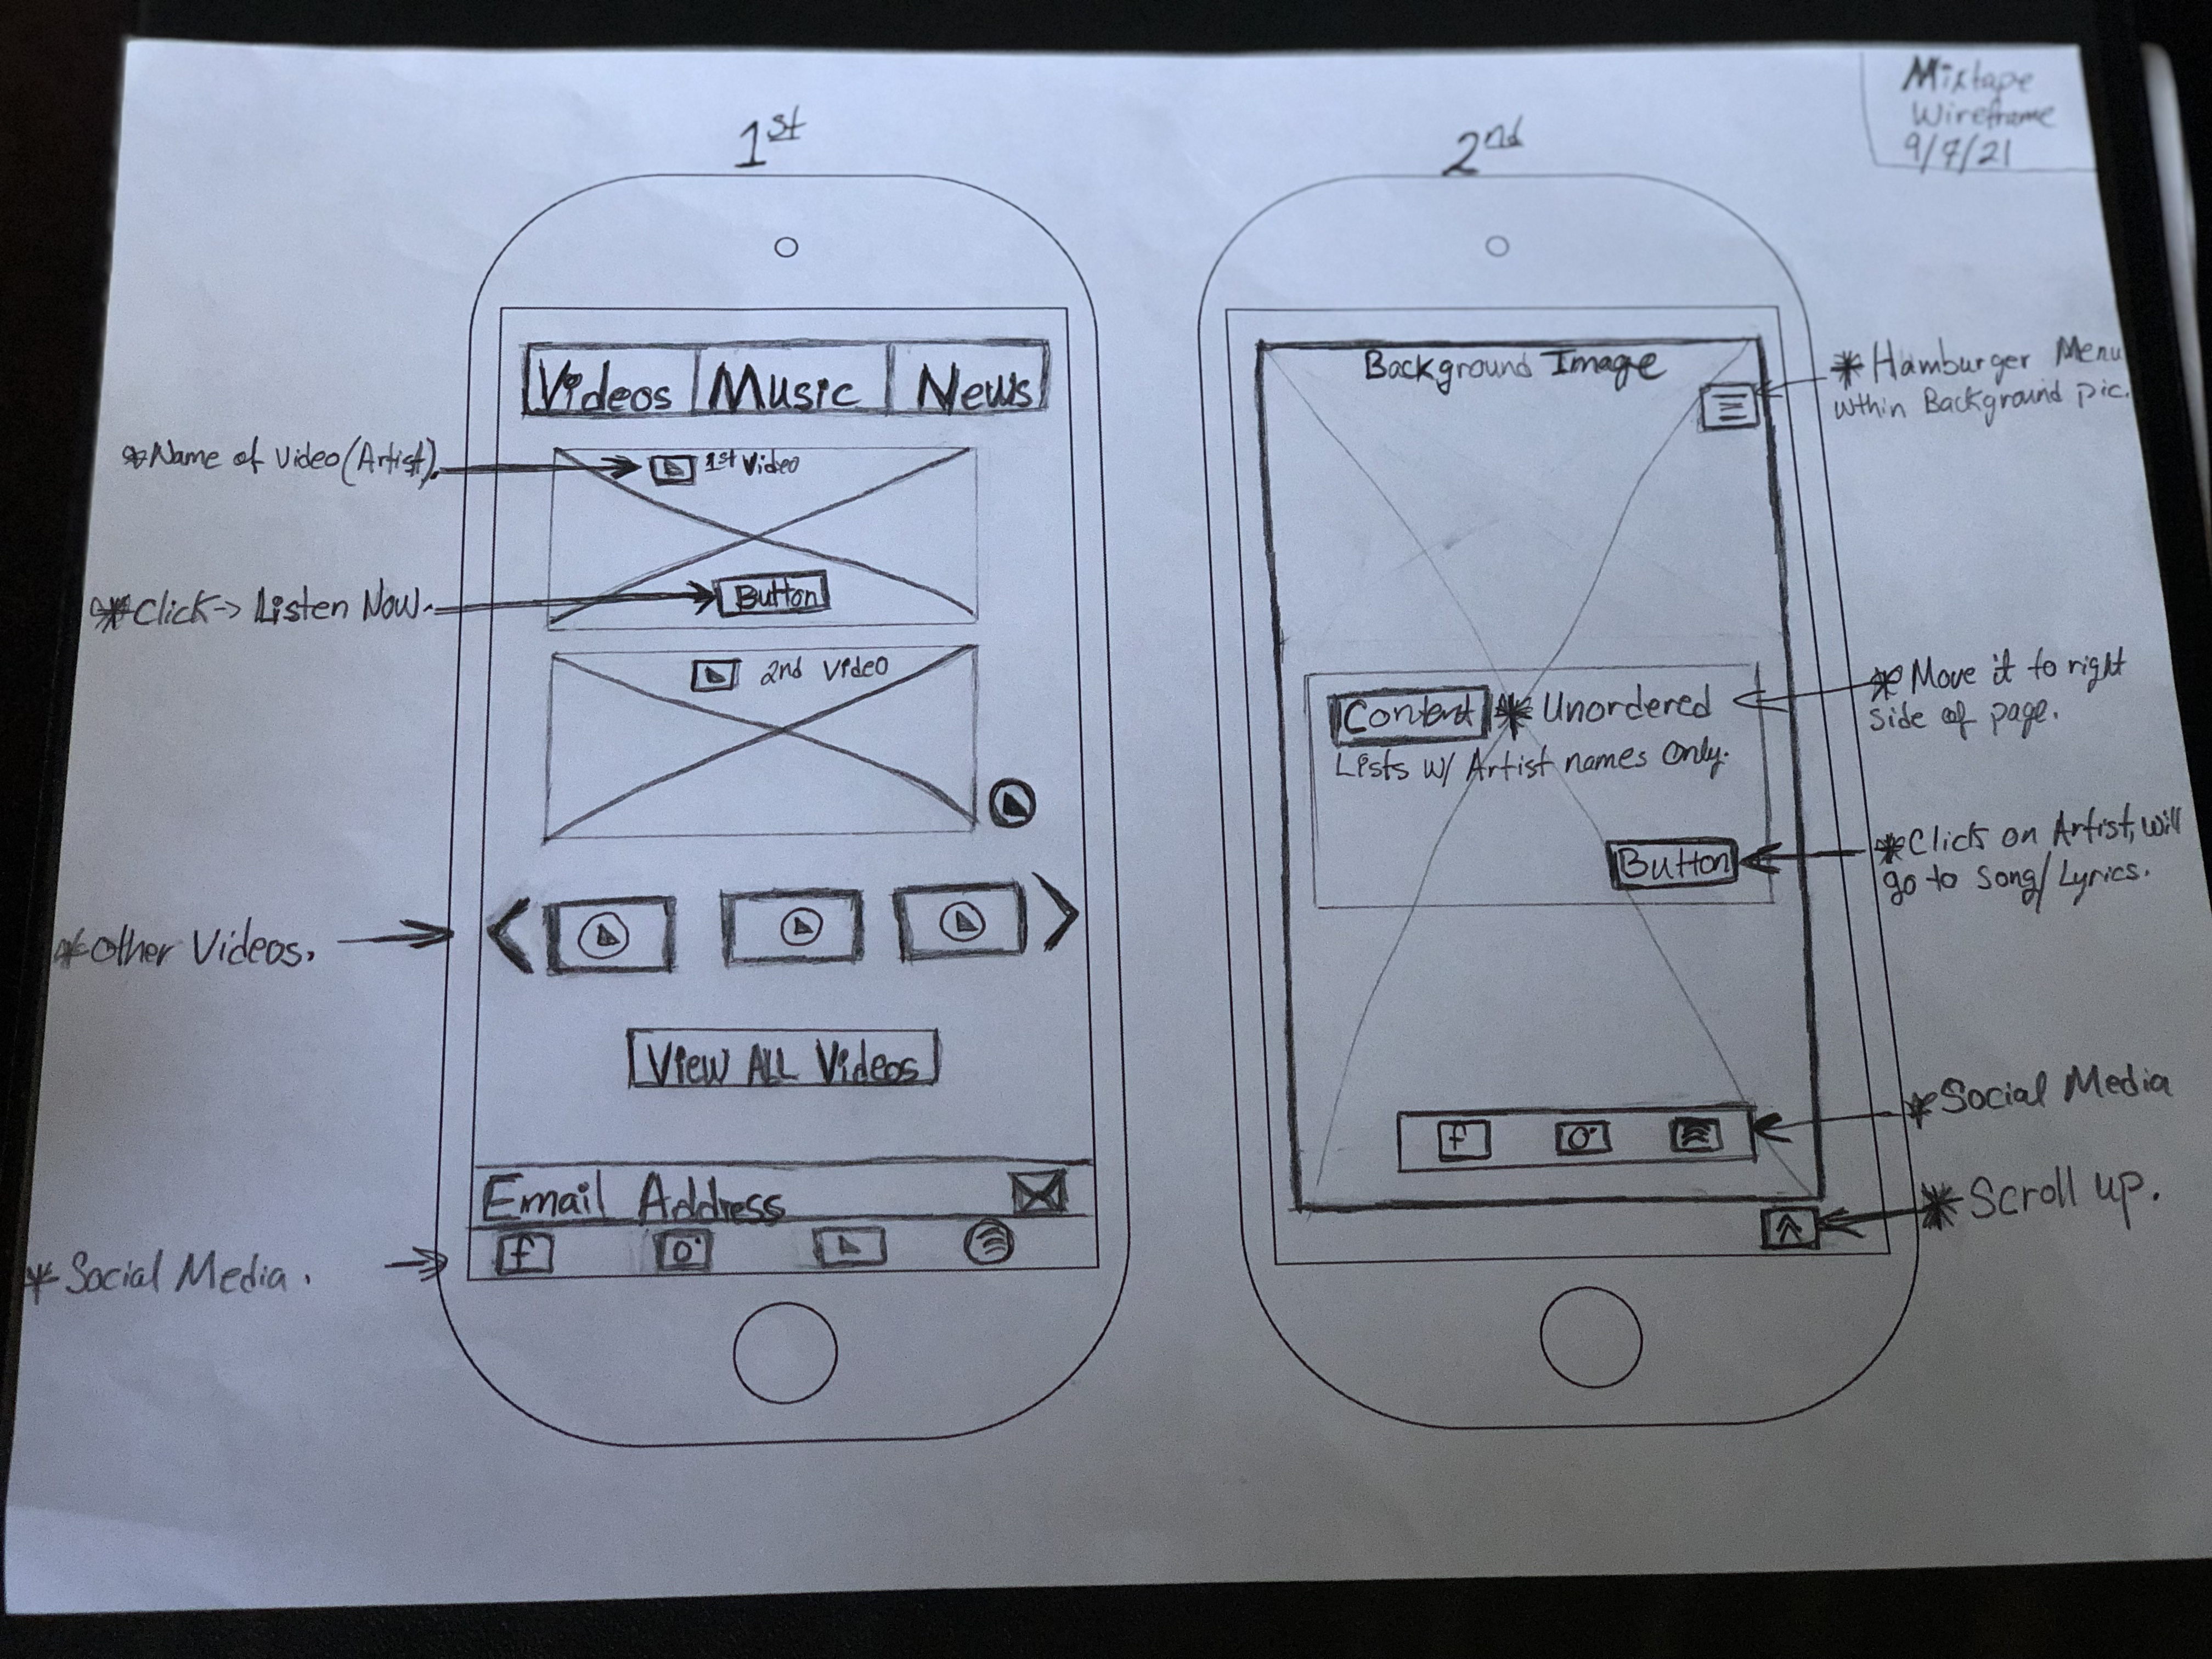 Mixtape
Wireframe
9/7/21
1st
Videos Music News
*Name of Video (Artist).
1st Video
*Click-> Listen Now.
Button
2nd Video
*Other Videos.
View ALL Videos
Email Address
f
*Social Media.
2nd
Background Image
*Hamburger Menu
within Background pic.
Content * Unordered
Lists w/ Artist names only.
*Move it to right
side of page.
Button
*Click on Artist, will
go to Song/Lyrics.
f
*Social Media
*Scroll up.